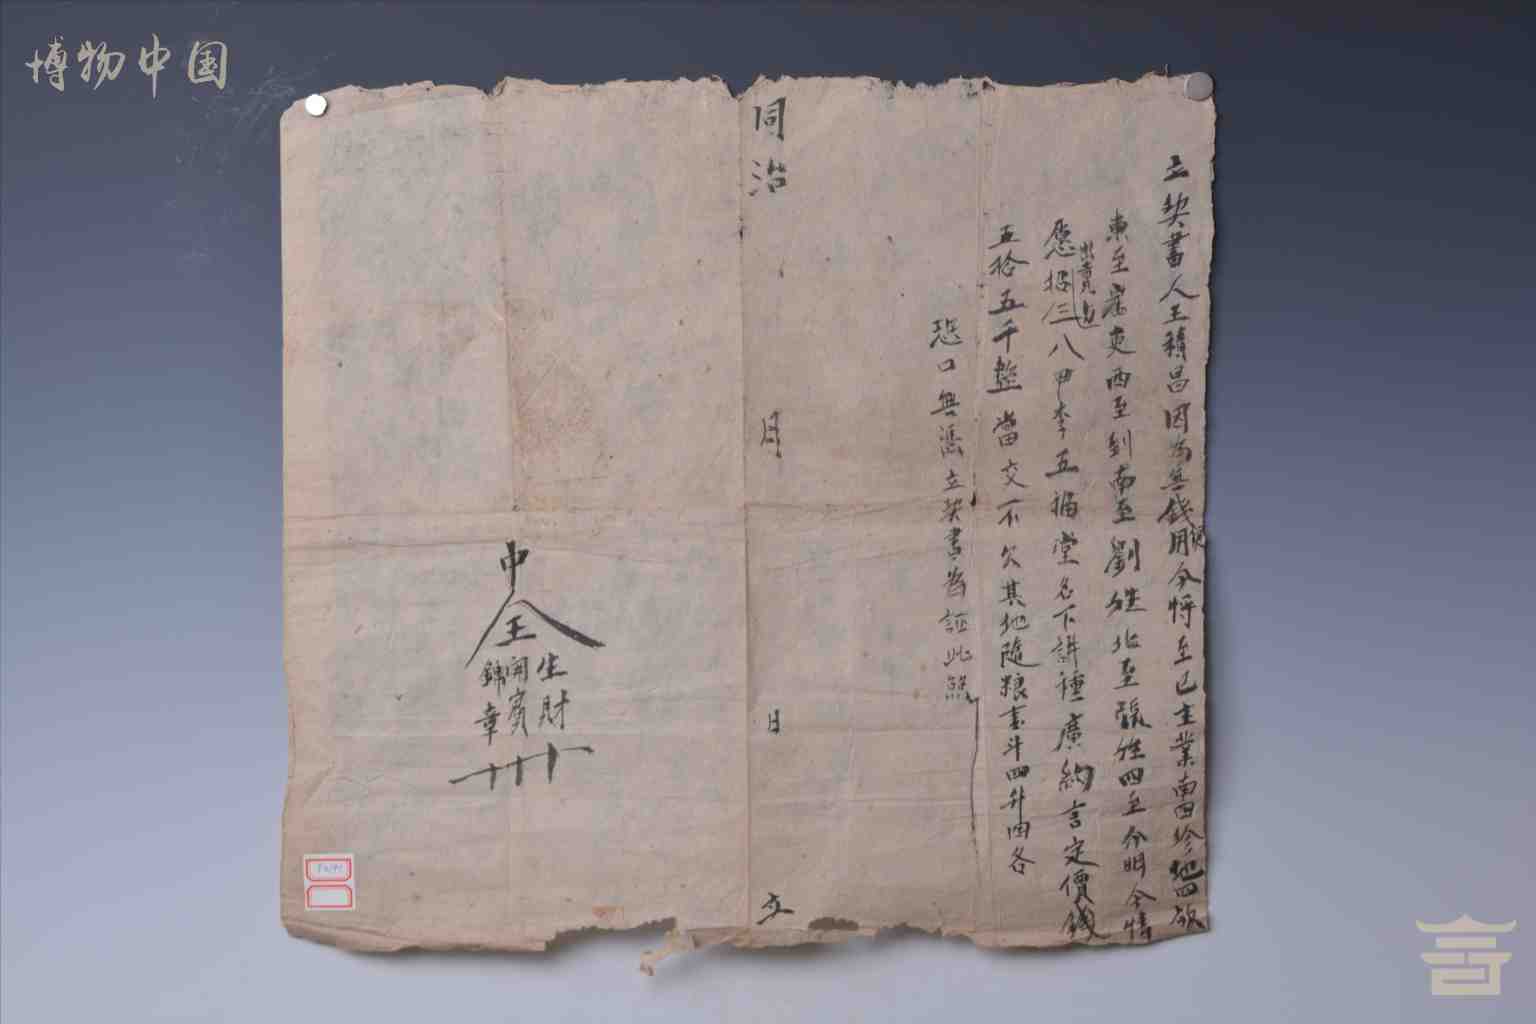 博物中国
立契書人王積昌因為無錢使用今將至已主業南四珍地四畝
東至崖吏西至到南至劉姓北至張姓四至分明今情
愿出賣与三八甲李五福堂名下耕種廣約言定價錢
五拾五千整當交不欠其地隨粮壹斗四升四各
恐口無憑立契書為証此照
同治 月 日 立
中人王
生財
開賓
錦章
十十十